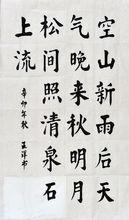 空山新雨后天
气晚来秋明月
松间照清泉石
上流
辛卯年秋